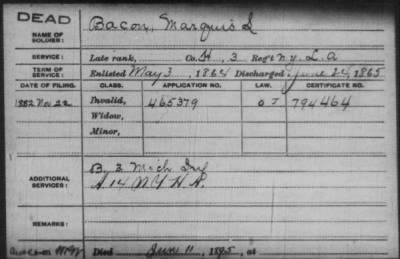 DEAD
NAME OF SOLDIER: Bacon, Marquis L
SERVICE: Late rank, Co. H, 3 Reg't N.Y. L.A
TERM OF SERVICE: Enlisted May 3, 1864 Discharged June 24, 1865
DATE OF FILING. CLASS. APPLICATION NO. LAW. CERTIFICATE NO.
1882 Nov 22 Invalid, 465379 794464
Widow,
Minor,
ADDITIONAL SERVICES: B 3 Mech Inf
A 14 N Y H A.
REMARKS:
Died June 11, 1895, at